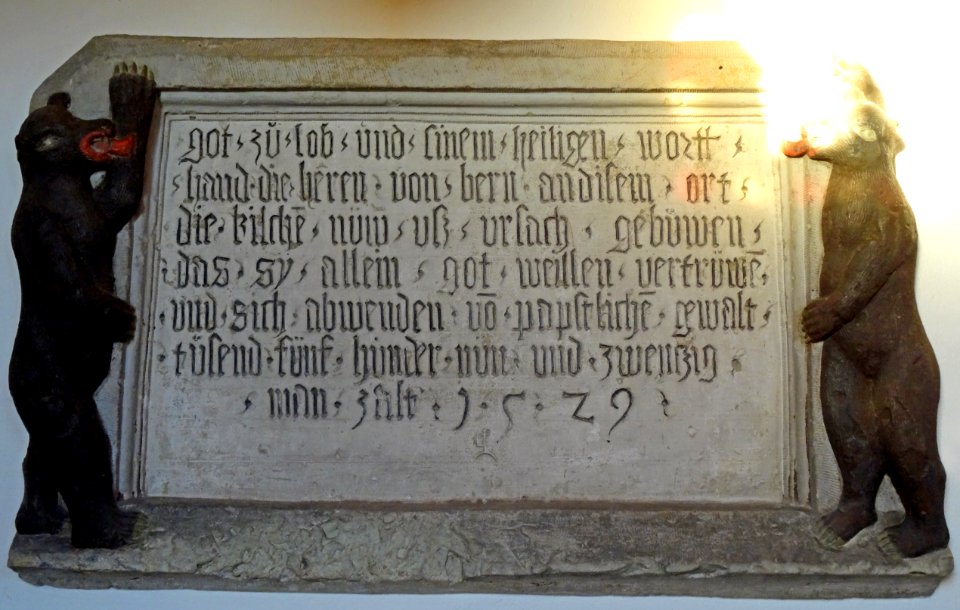 got · zů · lob · ůnd · sinem · heiligen · wortt ·
· hand · die · hēren · von · bern · an disem · ort ·
die · kilchē · nüw · usz · ursach · gebüwen ·
· das · sÿ · allein · got · wellen · vertrüwē ·
· und · sich · abwenden · vō · papstlichē · gewalt ·
· tüsend · fünf · hünder · nün · und · zwenzig ·
· man · zalt · 1 · 5 · 29 ·